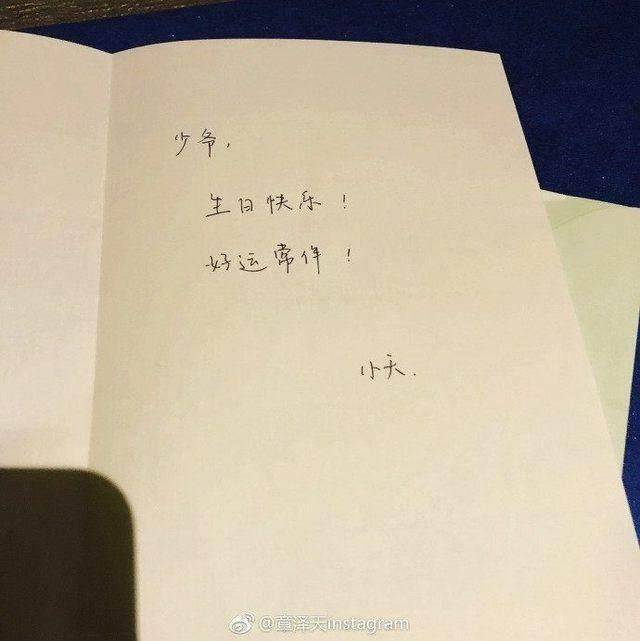 少爷,
生日快乐!
好运常伴!
小天.
@章泽天instagram